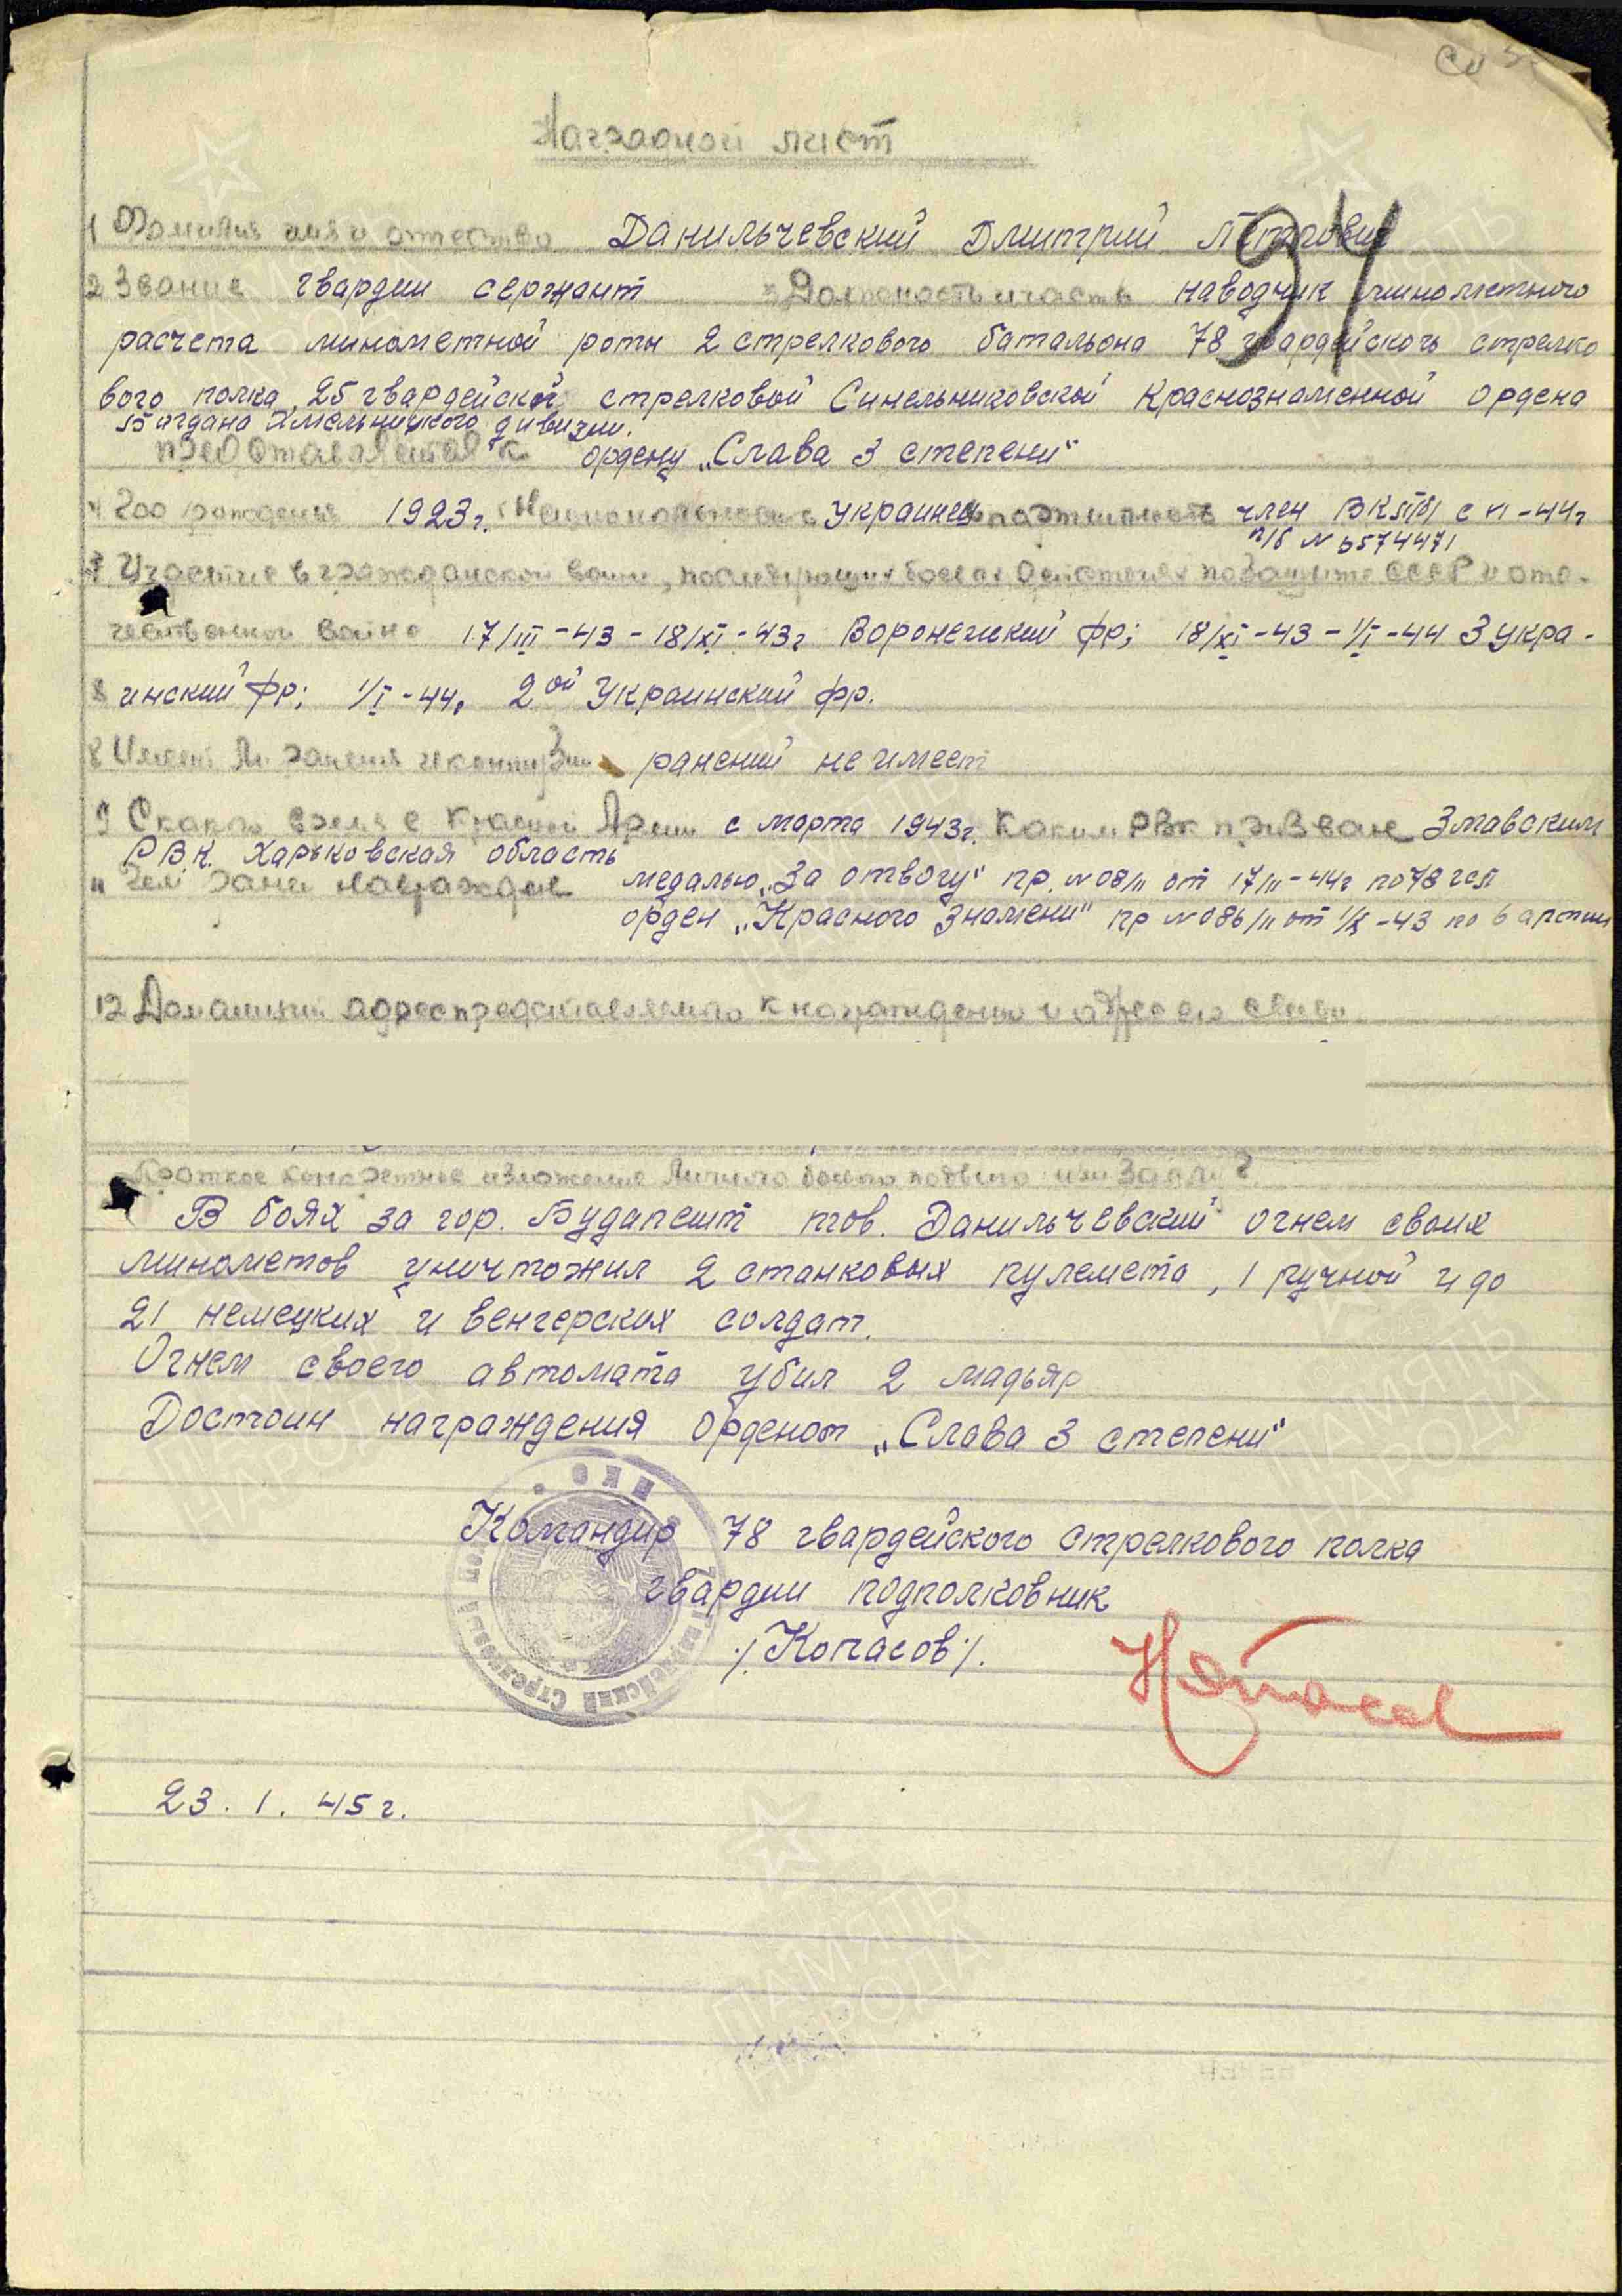 Наградной лист
94
1 Фамилия имя и отчество Данильчевский Дмитрий Петрович
2 Звание гвардии сержант 3 Должность и часть наводчик минометного
расчета минометной роты 2 стрелкового батальона 78 гвардейского стрелко
вого полка 25 гвардейской стрелковой Синельниковской Краснознаменной ордена
Богдана Хмельницкого дивизии.
представляется к ордену „Слава 3 степени“
4 Год рождения 1923г. Национальность украинец партийность член ВКП(б) с VI-44г
п/б N
7 Участие в гражданской войне, последующих боевых действиях по защите СССР и оте-
чественной войне 17/III-43-18/XI-43г Воронежский фр; 18/XI-43-1/I-44 3 укра-
8 инский фр; 1/I-44, 2ой Украинский фр.
8 Имеет ли ранения и контузии ранений не имеет
9 С какого время в Красной Армии с марта 1943г. Каким РВК призван Змиевским
Р.В.К. Харьковская область
11 Чем ранее награжден медалью „За отвагу“ пр. N 08/н от 17/II-44г по 78 гсп
орден „Красного Знамени“ пр N 086/н от 1/X-43 по 6 армии
12 Домашний адрес представляемого к награждению и адрес его семьи
Краткое конкретное изложение личного боевого подвига или заслуг
В боях за гор. Будапешт тов. Данильчевский огнем своих
минометов уничтожил 2 станковых пулемета, 1 ручной и до
21 немецких и венгерских солдат.
Огнем своего автомата убил 2 мадьяр
Достоин награждения орденом „Слава 3 степени“
Командир 78 гвардейского стрелкового полка
гвардии подполковник
/Копасов/.
23. 1. 45г.
ПАМЯТЬ
НАРОДА